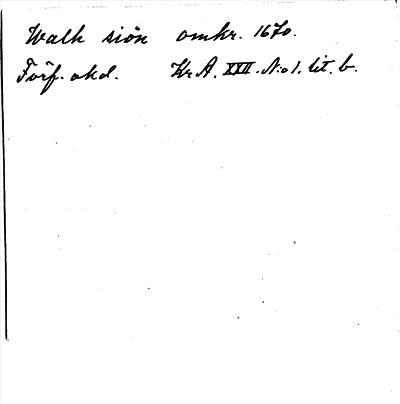 Walk siön omkr. 1670.
Förf. okd. Kr A. XXII. N:o 1. lit. b.